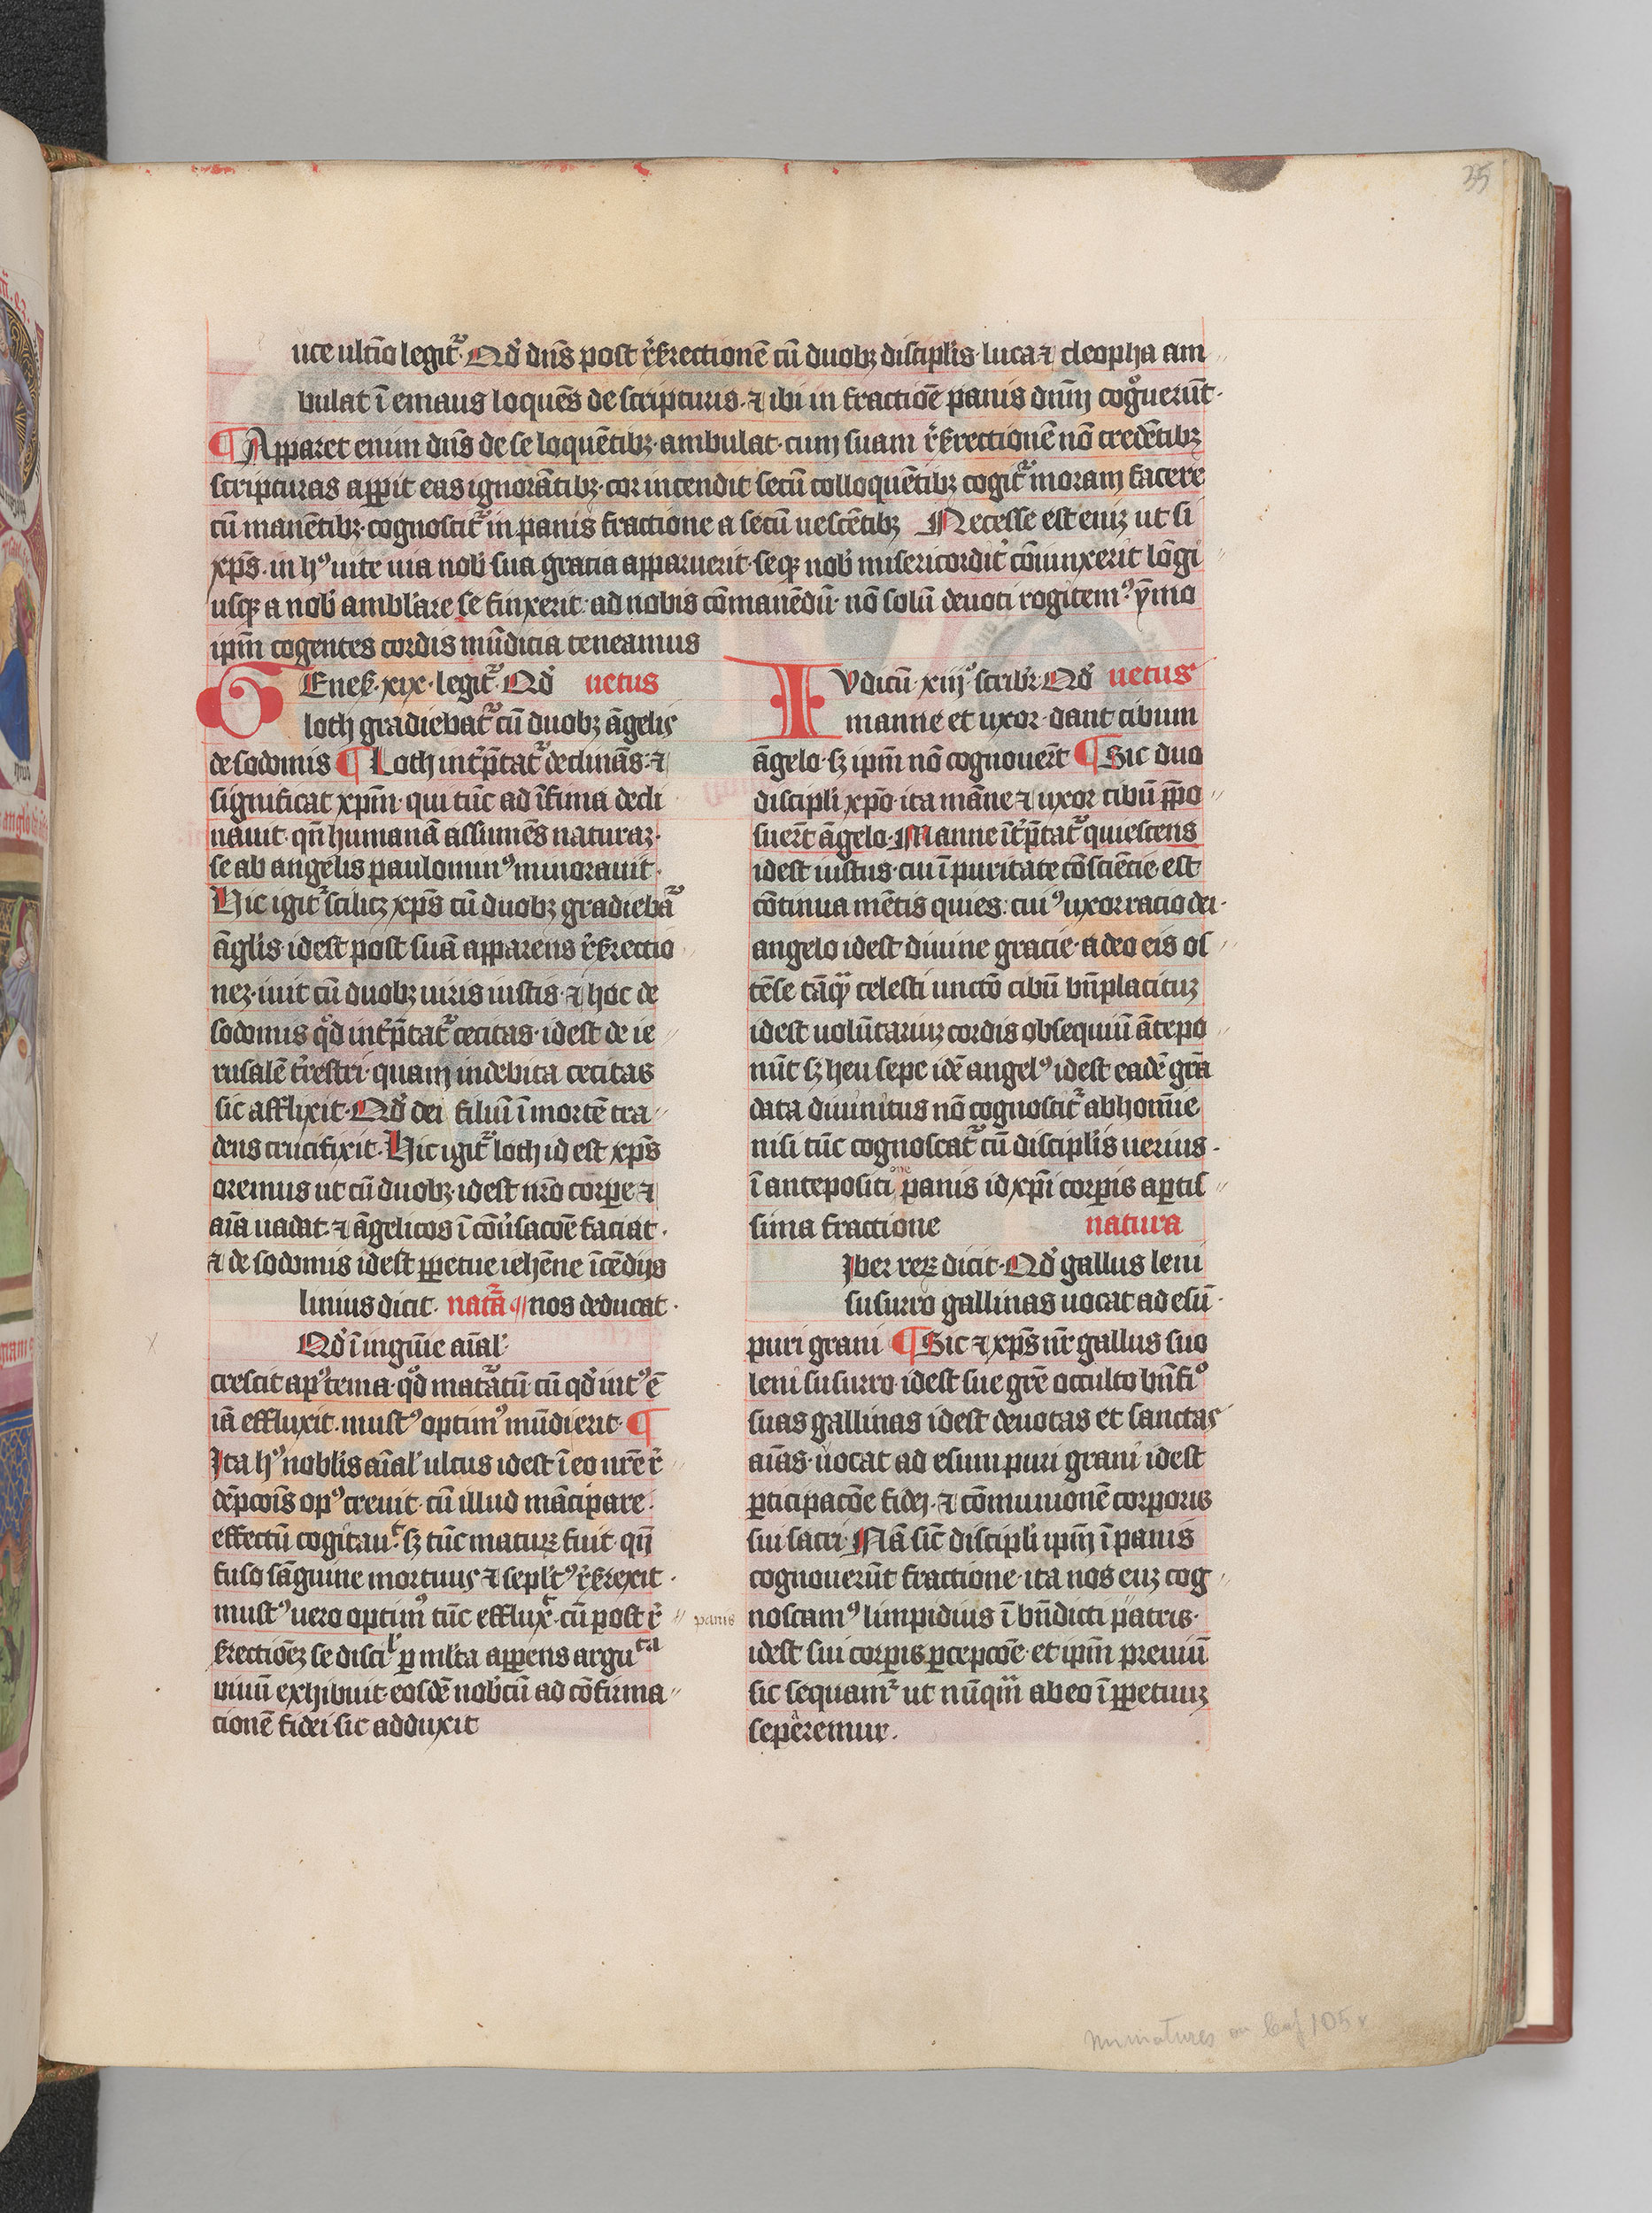 35
uce ultĩo legit᷑. Qd̾ dñs post r̾s̾rectionē cũ duobꝫ discipl̃is luca ⁊ cleopha am
bulat ĩ emaus loquẽs de scripturis. ⁊ ibi in fractiõe panis dñm cogᵒuerũt.
¶ Apparet enim dñs de se loquẽtibꝫ. ambulat. cum suam r̾s̾rectionē nõ credẽtibꝫ
scripturas aꝑit eas ignorãtibꝫ. cor incendit secũ colloquẽtibꝫ cogit᷑ moram facere
cũ manẽtibꝫ. cognoscit᷑ in panis fractione a secũ uescẽtibꝫ Necesse est eniꝫ ut si
xp̃s. in hꝰ uite uia nob̾ sua gracia apparuerit. seqꝫ nob̾ misericordit̾ cõiunxerit lõgi
usqꝫ a nob̾ ambl̾are se finxerit. ad nobis cõmanẽdũ. nõ solũ deuoti rogitemꝰ ẏmo
ipm̃ cogentes cordis mũdicia teneamus
GEneẞ. xix. legit᷑. Qd̾ uetus
loth gradiebat᷑ cũ duobꝫ ãgelis
de sodomis ¶ Loth int̾p̃tat᷑ declinãs. ⁊
significat xpm̃. qui tũc ad ĩfima decli
nauit. qñ humanã assumẽs naturaꝫ.
se ab angelis paulominꝰ minorauit.
Hic igit᷑ scilicꝫ xp̃s cũ duobꝫ gradieba᷑
ãgl̾is idest post suã apparens r̾s̾rectio
neꝫ. iuit cũ duobꝫ uiris iustis. ⁊ hoc de
sodomis qᵒd int̾p̃tat᷑ cecitas. idest de ie
rusalẽ t̾restri. quam indebita cecitas
sic afflixit. Qd̾ dei filiũ ĩ mortẽ tra
dens crucifixit. Hic igit᷑ loth id est xp̃s
oremus ut cũ duobꝫ. idest nr̃o corpe ⁊
aĩa uadat. ⁊ ãgelicos ĩ cõu̾sacõe faciat.
⁊ de sodomis idest ꝑpetue iehẽne ĩcẽdijs
linius dicit. nat̃a ¶ nos deducat.
Qd̾ ĩ inguĩe aĩal̾
crescit apꝰtema. qᵒd mat᷑atũ cũ qd̾ iutꝰ ẽ
iã effluxit. mustꝰ optimꝰ mũdierit. ¶
Ita hꝰ nobl̾is aĩal̾ ulcus idest ĩ eo nr̃e r̾
dẽpcoĩs opꝰ creuit. cũ illud mãcipare.
effectũ cogitauᵗ. sꝫ tũc maturꝫ fuit. qñ
fuso sãguine mortuus ⁊ sepl̾tꝰ r̾s̾rexit.
mustꝰ uero optimꝰ tũc effluxᵗ. cũ post r̾
s̾rectiõeꝫ se discil̾ ꝑ ml̾ta aꝑens arguᵗᵃ
uiuũ exhibuit. eosdẽ nob̾cũ ad cõfirma
tionẽ fidei sic adduxit
IUdicũ. xiijᵒ. scribr̾. Qd̾ uetus
manne et uxor. dant cibum
ãgelo. sꝫ ipm̃ nõ cognouer̃t ¶ Sic duo
discipli xpõ. ita mãne ⁊ uxor cibũ ꝓpo
suer̃t ãgelo. Manne ĩt̾p̃tat᷑ quiescens
idest iustus. cui ĩ puritate cõsciẽcie. est
cõtinua mẽtis quies. cuiꝰ uxor racio dei.
angelo idest diuine gracie. adeo eis os
tẽse tãqᷓ celesti uncto cibũ bñplacituꝫ
idest uolũtariuꝫ cordis obsequiũ ãtepo
nũt sꝫ heu sepe idẽ angelꝰ idest eadẽ gr̃a
data diuinitus nõ cognoscit᷑ ab homĩe
nisi tũc cognoscat᷑ cũ discipl̾is uerius.
ĩ antepositi one panis id xp̃i corꝑis aꝑtis
sima fractione natura
Iber reꝝ dicit. Qd̾ gallus leui
susurro gallinas uocat ad esũ.
puri grani ¶ Sic ⁊ xp̃s nr̃ gallus suo
leui susurro. idest sue gr̃e occulto bñfiᵒ
suas gallinas idest deuotas et sanctas
aĩas. uocat ad esum puri grani idest
ꝑticipacõe fidei. ⁊ cõmunionẽ corporis
sui sacri. Nã sic̃ discipli ipm̃ ĩ panis
cognouerũt fractione. ita nos euꝫ cog
panis noscamꝰ limpidius ĩ bñdicti patris.
idest sui corꝑis ꝑcepcõe. et ipm̃ preuiũ
sic sequam᷑ ut nũqᷓm ab eo ĩ ꝑpetuuꝫ
seperemur.
Miniatures on leaf 105v